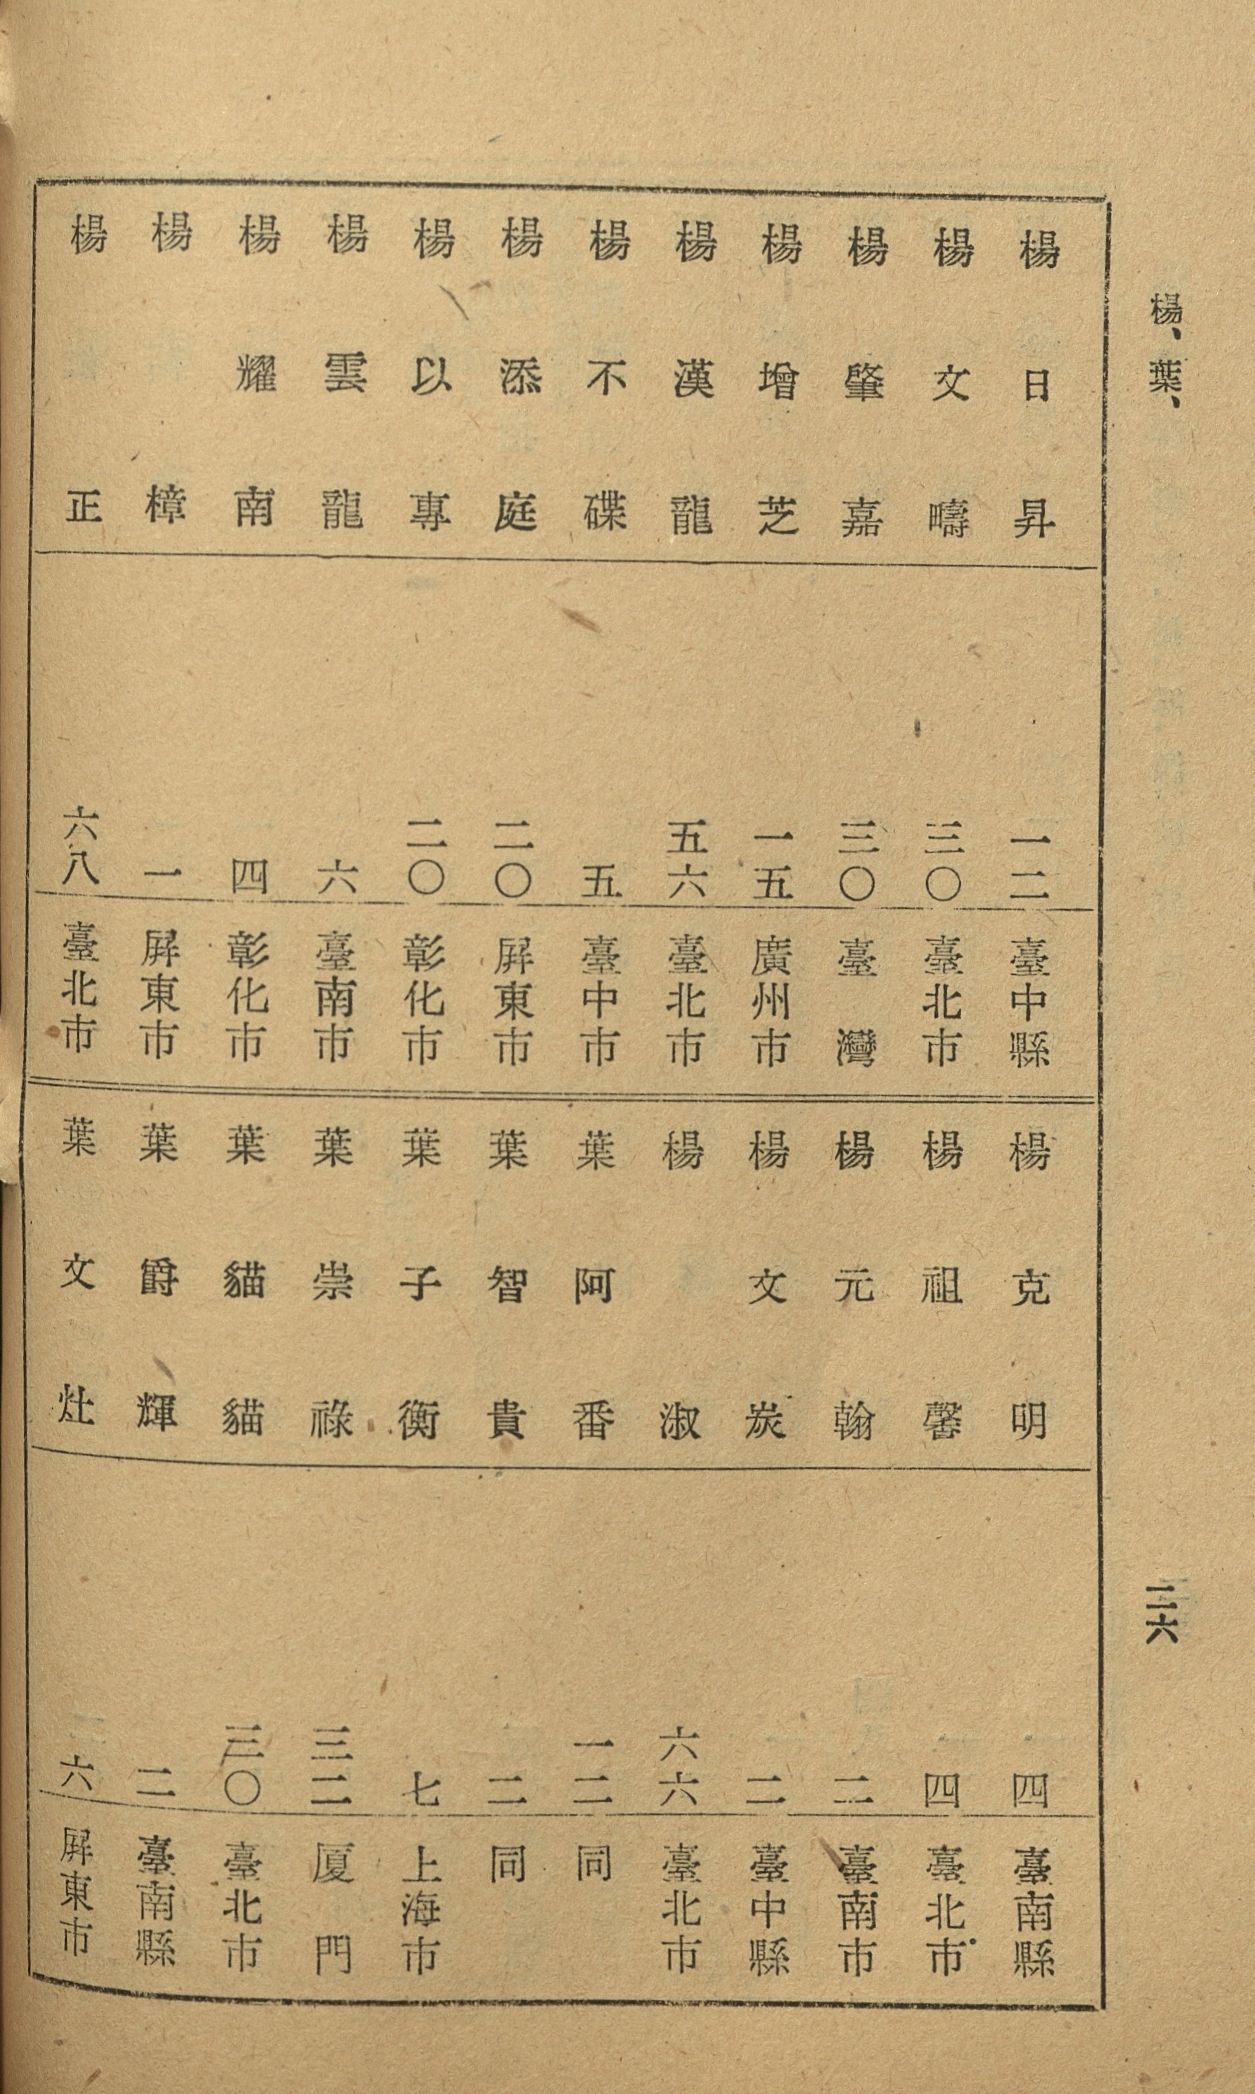 楊、葉、
二六
楊日昇 一二 臺中縣
楊文疇 三〇 臺北市
楊肇嘉 三〇 臺灣
楊增芝 一五 廣州市
楊漢龍 五六 臺北市
楊不碟 五 臺中市
楊添庭 二〇 屛東市
楊以專 二〇 彰化市
楊雲龍 六 臺南市
楊耀南 四 彰化市
楊樟 一 屛東市
楊正 六八 臺北市
楊克明 四 臺南縣
楊祖馨 四 臺北市
楊元翰 二 臺南市
楊文炭 二 臺中縣
楊淑 六六 臺北市
葉阿番 一二 同
葉智貴 二 同
葉子衡 七 上海市
葉崇祿 三二 厦門
葉貓貓 三〇 臺北市
葉爵輝 二 臺南縣
葉文灶 六 屛東市